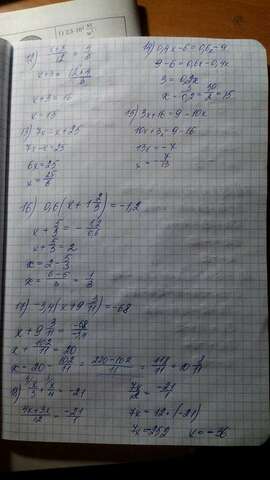 12) (x+3)/12 = 4/3
x+3 = (12·4)/3
x+3=16
x=13
13) 7x-x+25
7x-x=25
6x=25
x=25/6
14) 0,4x-6=0,6x-9
9-6=0,6x-0,4x
3=0,2x
15) 3x+16=9-10x
10x+3x=9-16
13x=-7
x=-7/13
16) 0,6(x+1 2/3)=-1,2
x+5/3=-1,2/0,6
x+5/3=2
x=2-5/3
x=(6-5)/3=1/3
17) -3,4(x+9 3/11)=-68
x+9 3/11=-68/-3,4
x+102/11=20
x=20-102/11=(220-102)/11=118/11=10 8/11
18) x/3+x/4=-21
(4x+3x)/12=-21/1
7x/12=-21/1
7x=12·(-21)
7x=-252 x=-36